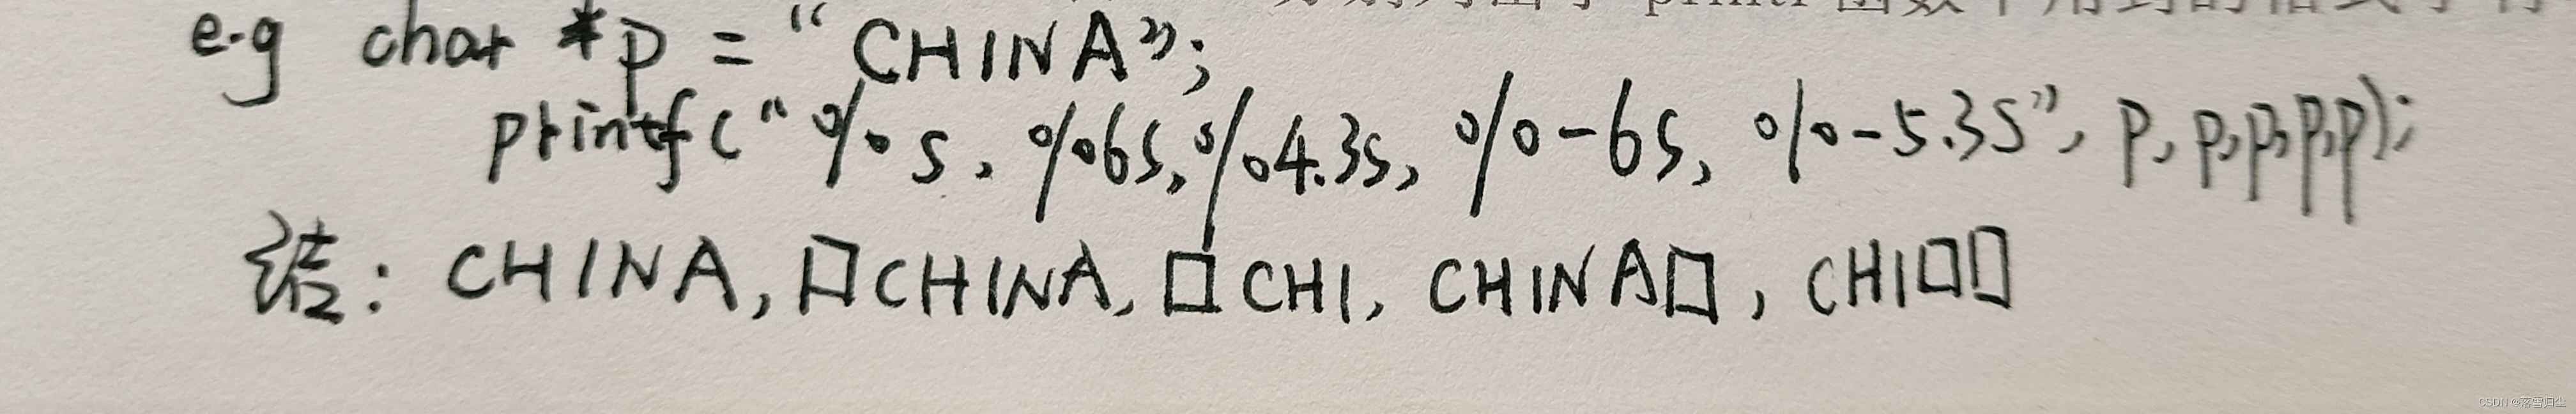 printf函数中用到的格式字符
e.g char *p = “CHINA”;
printf(“%s, %6s,%4.3s, %-6s, %-5.3s”, p, p,p,p,p);
结: CHINA,□CHINA,□CHI, CHINA□, CHI□□
CSDN @落雪归尘